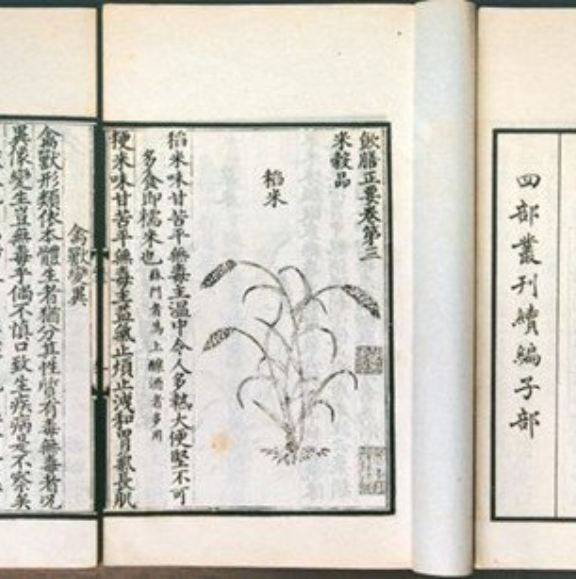 四部叢刊續編子部
飲膳正要卷第三
米穀品
稻米
稻米味甘苦平無毒主溫中令人多熱大便堅不可
多食即糯米也蘇門者為上釀酒者多用
粳米味甘苦平無毒主益氣止煩止洩和胃氣長肌
禽獸變異
禽獸形類依本體生者猶分其性質有毒無毒者況
異像變生豈無毒乎倘不慎口致生疾病是不察矣